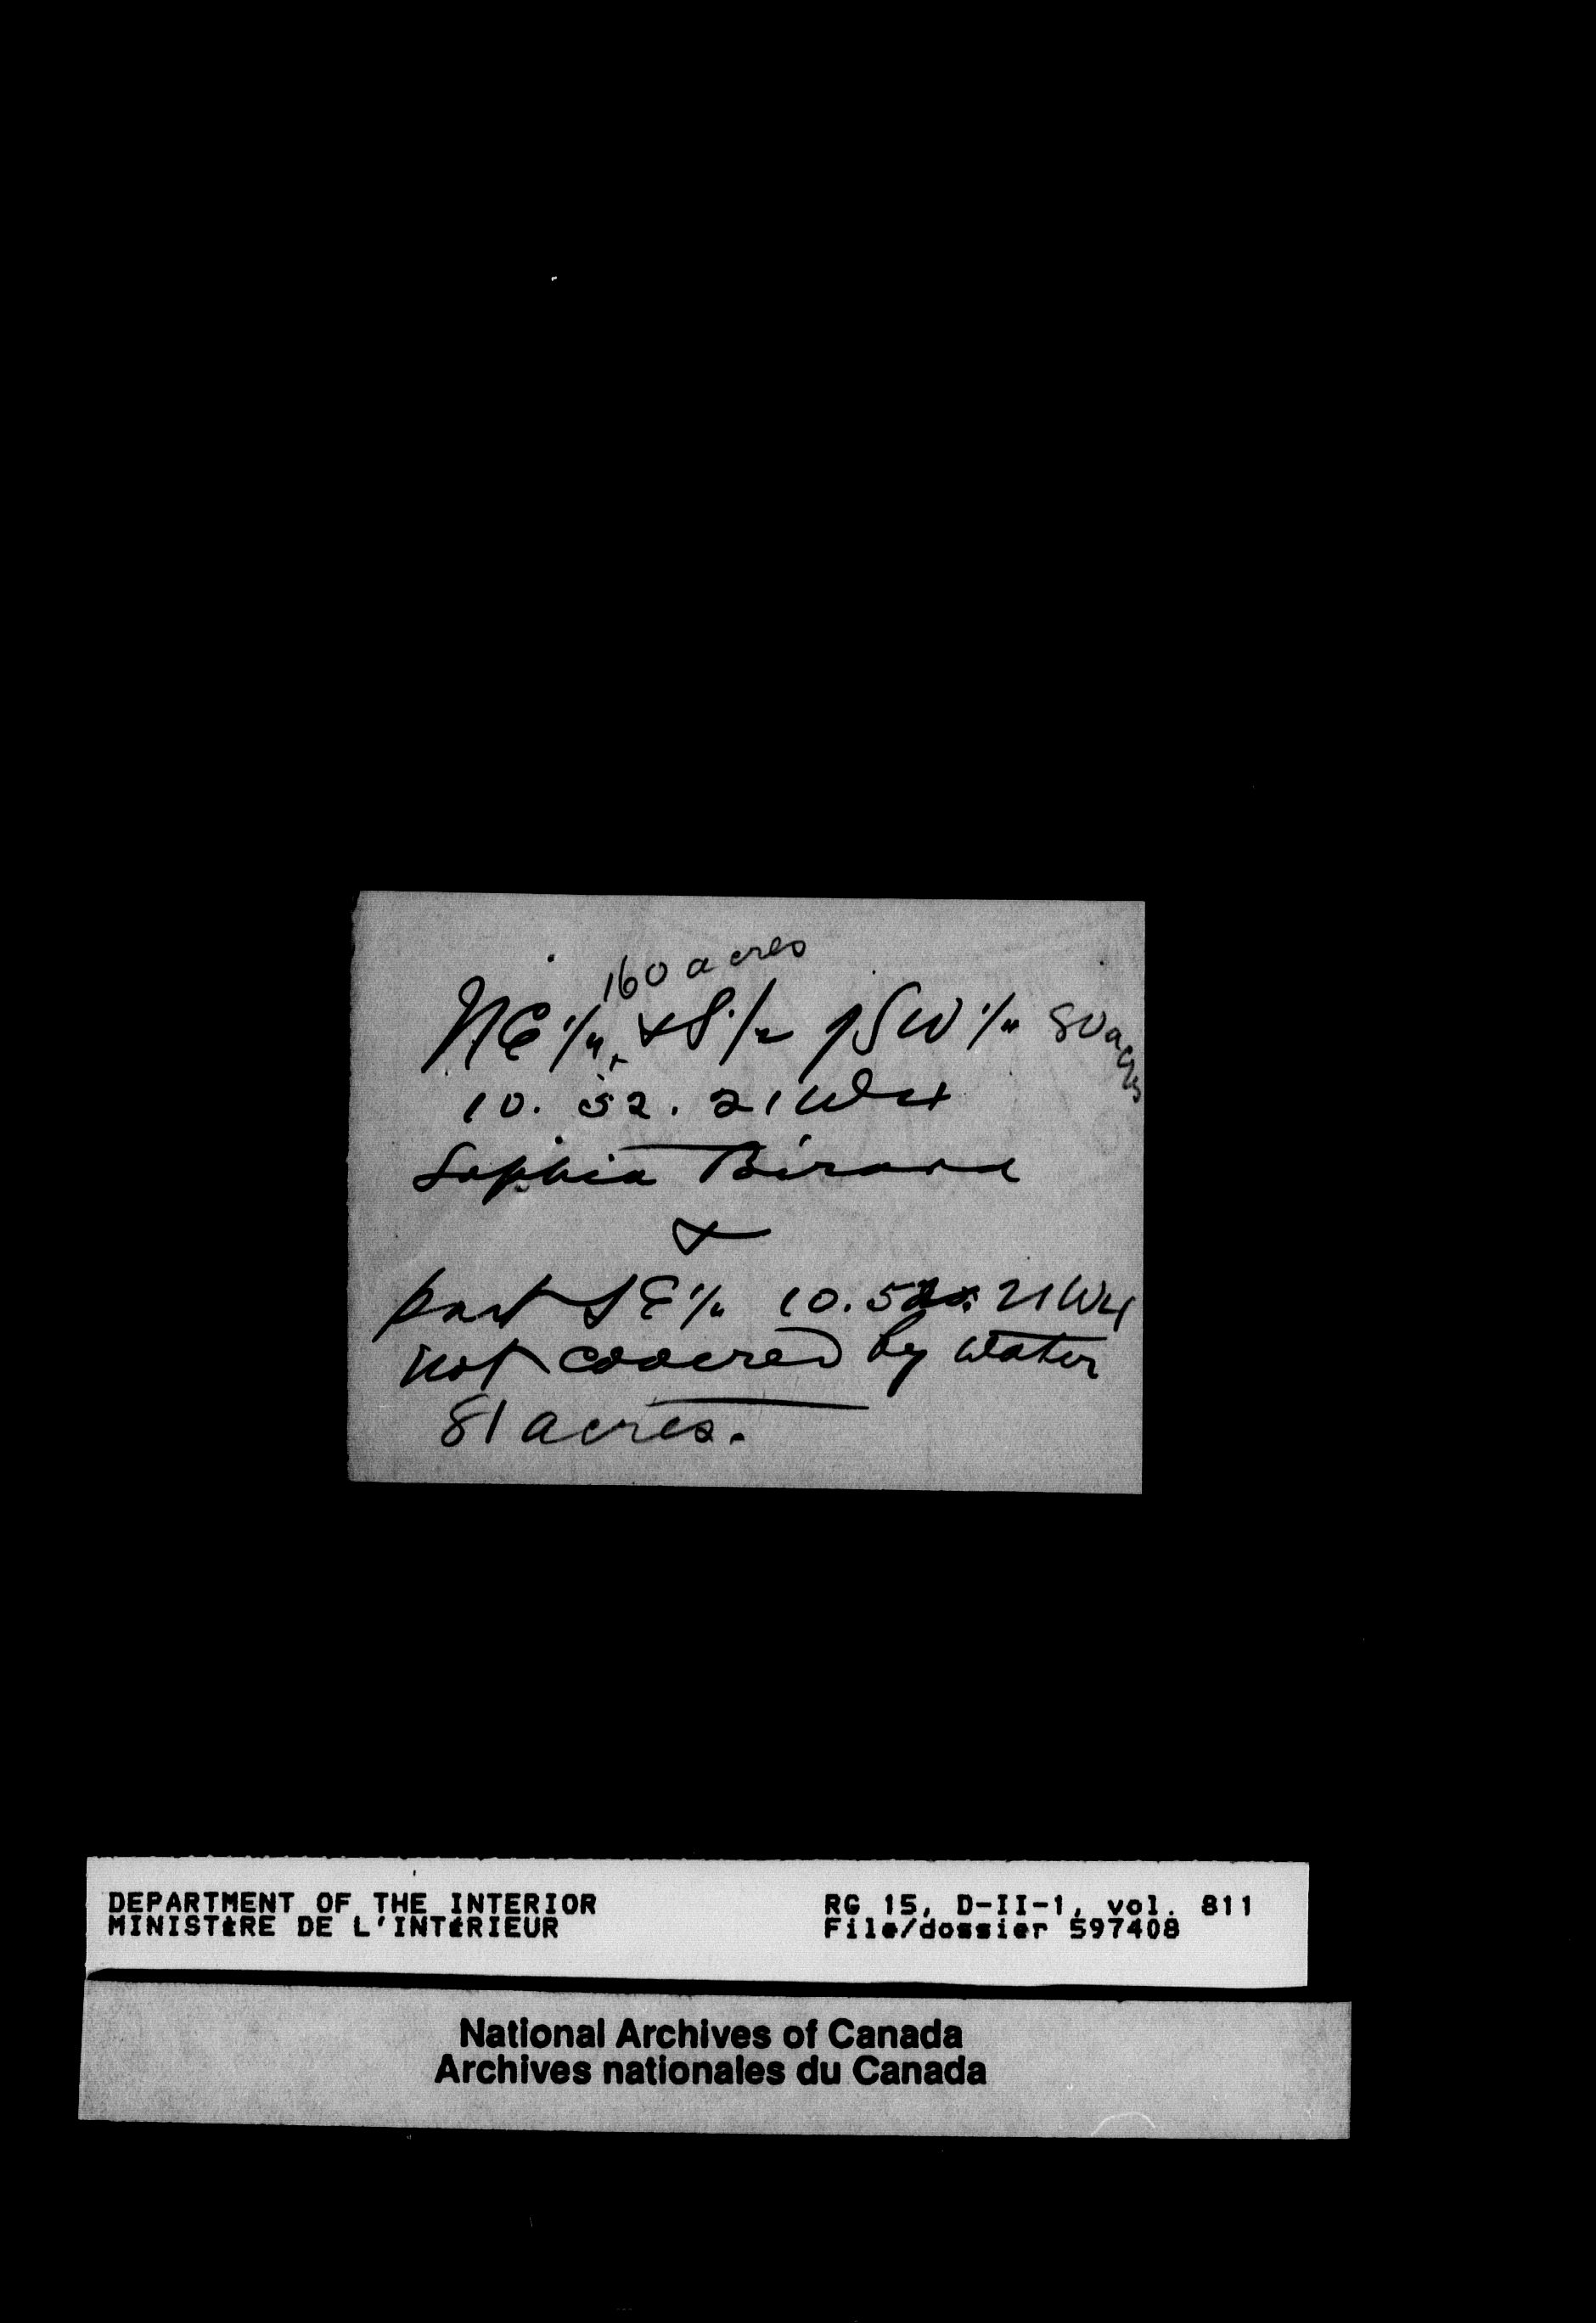 160 acres
NE 1/4 & S 1/2 of SW 1/4 80 acres
10. 52. 21 W 4
Sophia Birand
&
part SE 1/4 10. 52. 21 W 4
not covered by water
81 acres.
DEPARTMENT OF THE INTERIOR
MINISTÈRE DE L'INTÉRIEUR
RG 15, D-II-1, vol. 811
File/dossier 597408
National Archives of Canada
Archives nationales du Canada